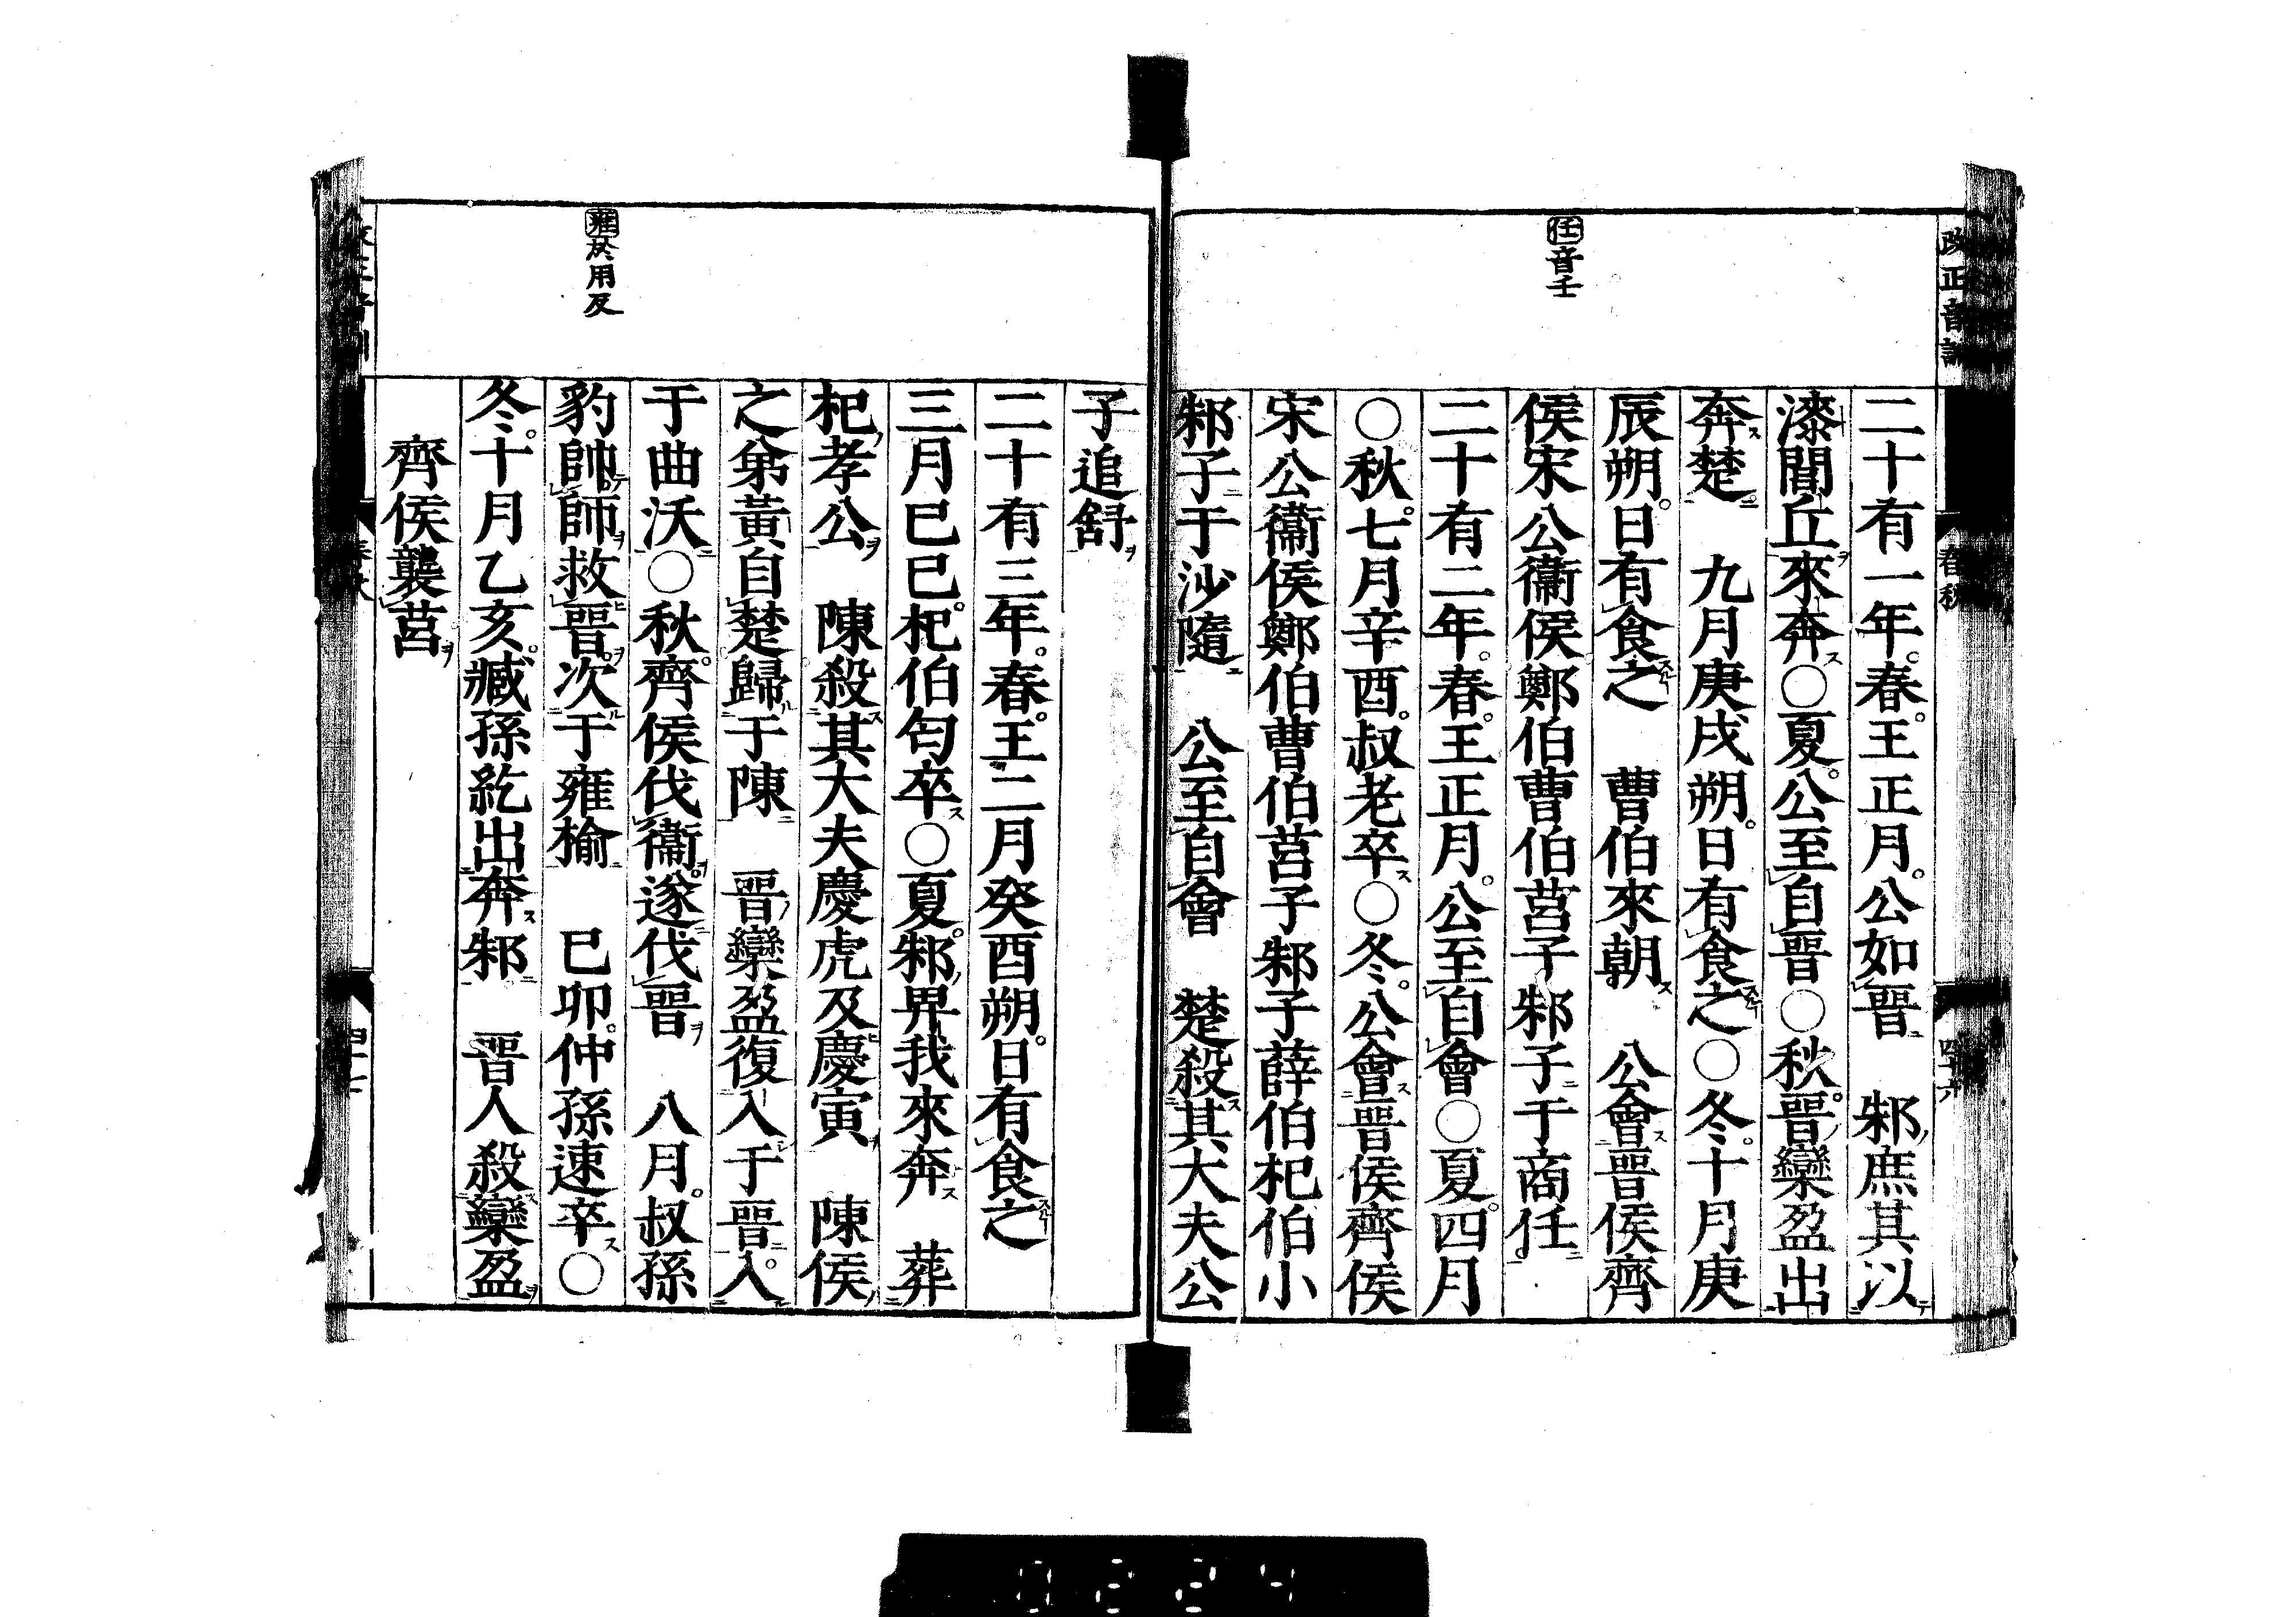 改正音訓
春秋
四十六
任音壬
二十有一年。春。王正月。公如晉　邾庶其以
漆閭丘來奔〇夏。公至自晉〇秋。晉欒盈出
奔楚　九月庚戌朔。日有食之〇冬。十月庚
辰朔。日有食之　曹伯來朝　公會晉侯齊
侯宋公衞侯鄭伯曹伯莒子邾子于商任。
二十有二年。春。王正月。公至自會〇夏。四月
〇秋。七月辛酉。叔老卒〇冬。公會晉侯齊侯
宋公衞侯鄭伯曹伯莒子邾子薛伯杞伯小
邾子于沙隨　公至自會　楚殺其大夫公
雍於用反
子追舒
二十有三年。春。王二月癸酉朔。日有食之
三月己巳。杞伯匄卒〇夏。邾畀我來奔　葬
杞孝公　陳殺其大夫慶虎及慶寅　陳侯
之弟黃自楚歸于陳　晉欒盈復入于晉。入
于曲沃〇秋。齊侯伐衞。遂伐晉　八月。叔孫
豹帥師救晉。次于雍榆　己卯。仲孫速卒〇
冬。十月乙亥。臧孫紇出奔邾　晉人殺欒盈
齊侯襲莒